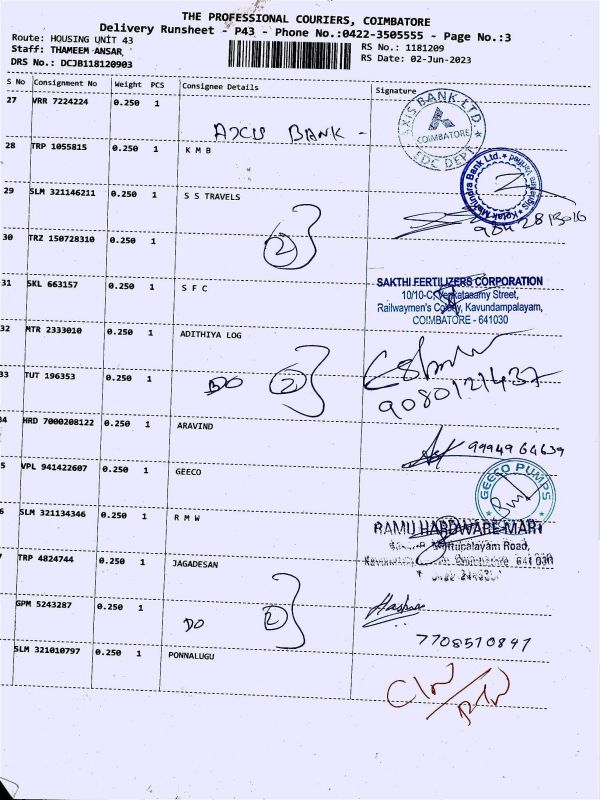 THE PROFESSIONAL COURIERS, COIMBATORE
Delivery Runsheet - P43 - Phone No.:0422-3505555 - Page No.:3
Route: HOUSING UNIT 43
RS No.: 1181209
Staff: THAMEEM ANSAR,
RS Date: 02-Jun-2023
DRS No.: DCJB118120903
S No Consignment No Weight PCS Consignee Details Signature
27 VRR 7224224 0.250 1 AXIS BANK -
AXIS BANK LTD.
COIMBATORE
28 TRP 1055815 0.250 1 K M B
Kotak Mahindra Bank Ltd.
29 SLM 321146211 0.250 1 S S TRAVELS
30 TRZ 150728310 0.250 1 2
31 SKL 663157 0.250 1 S F C
SAKTHI FERTILIZERS CORPORATION
10/10-C, Venkatasamy Street,
Railwaymen's Colony, Kavundampalayam,
COIMBATORE - 641030
32 MTR 2333010 0.250 1 ADITHIYA LOG
33 TUT 196353 0.250 1 DO 2
9080121437
34 HRD 7000208122 0.250 1 ARAVIND
9994964639
5 VPL 941422607 0.250 1 GEECO
GEECO PUMPS
6 SLM 321134346 0.250 1 R M W
RAMU HARDWARE MART
7 TRP 4824744 0.250 1 JAGADESAN
GPM 5243287 0.250 1 DO 2
7708510847
SLM 321010797 0.250 1 PONNALUGU